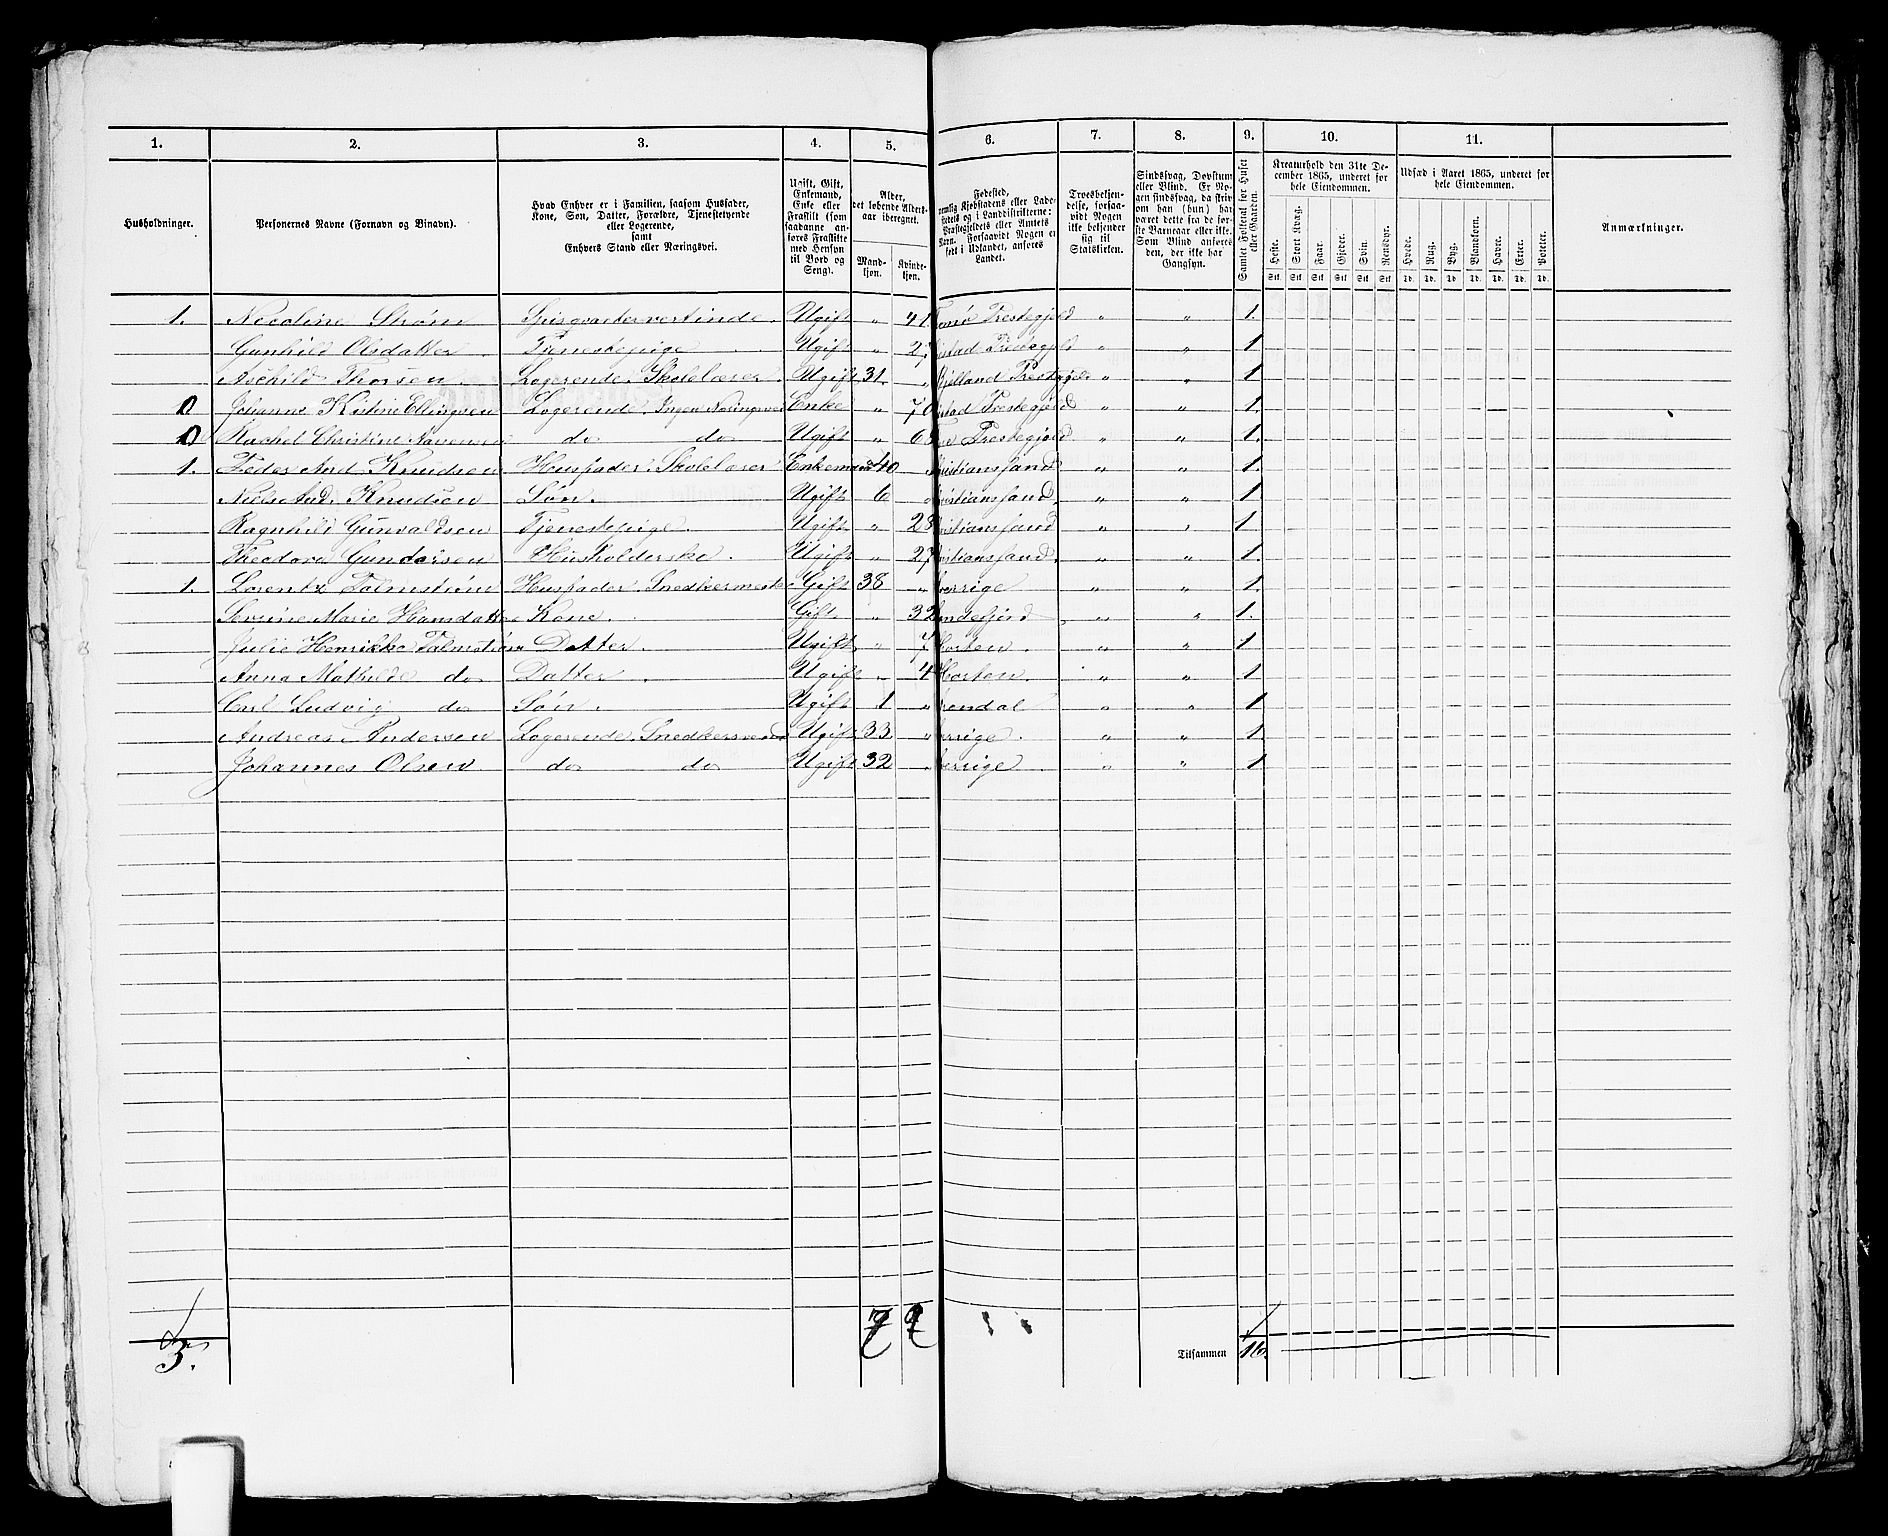 1. 2. 3. 4. 5. 6. 7. 8. 9. 10. 11.
Husholdninger.
Personernes Navne (Fornavn og Binavn).
Hvad Enhver er i Familien, saasom Husfader,
Kone, Søn, Datter, Forældre, Tjenestetyende
eller Logerende,
samt
Enhvers Stand eller Næringsvei.
Ugift, Gift,
Enkemand,
Enke eller
Fraskilt (som
saadanne an-
føres Fraskilte
med Hensyn
til Bord og
Seng).
Alder,
det løbende Alders-
aar iberegnet.
Mand-
kjøn.
Kvinde-
kjøn.
Fødested,
nemlig Kjøbstadens eller Lade-
stedets og i Landdistrikterne:
Præstegjeldets eller Amtets
Navn. Forsaavidt Nogen er
født i Udlandet, anføres
Landet.
Troesbekjen-
delse, forsaa-
vidt Nogen
ikke bekjender
sig til
Statskirken.
Sindssvag, Døvstum
eller Blind. Er No-
gen sindssvag, da skriv
om han (hun) har
været dette fra de før-
ste Barneaar eller ikke.
Som Blind anføres
den, der ikke har
Gangsyn.
Samlet Folketal for Huset
eller Gaarden.
Kreaturhold den 31te De-
cember 1865, underet for
hele Eiendommen.
Heste. Stort Kvæg. Faar. Gjeder. Svin. Rensdyr.
Stk. Stk. Stk. Stk. Stk. Stk.
Udsæd i Aaret 1865, underet for
hele Eiendommen.
Hvede. Rug. Byg. Blandkorn. Havre. Erter. Poteter.
Td. Td. Td. Td. Td. Td. Td.
Anmærkninger.
1. Nicoline Strøm Spisqvarterverstinde. Ugift „ 41 Præstegjeld „ „ 1.
Gunhild Olsdatter Tjenestepige Ugift „ 27 Præstegjeld „ „ 1
Aschild Thorsen Logerende. Skolelærer. Ugift 31. „ Præstegjeld „ „ 1
0 Johanne Kistine Ellingsen Logerende. Ingen Næringsvei Enke „ 70 Præstegjeld „ „ 1.
0 Rachel Christine do do Ugift „ Præstegjeld „ „ 1.
1. Peder And. Knudsen Husfader. Skolelærer Enkemand 40 „ Christiansand „ „ 1
Niels And. Knudsen Søn. Ugift 6 „ Christiansand „ „ 1
Ragnhild Gunvaldsen Tjenestepige. Ugift „ 28 Christiansand „ „ 1
Theodora Gundersen Husholderske. Ugift „ 27 Christiansand. „ „ 1.
1. Lorentz Palmstrøm Husfader. Snedkermester Gift 38 „ Sverrige „ „ 1
Serine Marie Hansdatter Kone. Gift „ 32 Sandefjord „ „ 1.
Julie Henrikke Palmstrøm Datter. Ugift „ 7 Horten. „ „ 1
Anna Mathilde do Datter Ugift „ 4 Horten. „ „ 1
Carl Ludvig do Søn. Ugift 1 „ Arendal „ „ 1
Andreas Andersen Logerende. Snedkersvend Ugift 33 „ Sverrige. „ „ 1.
Johannes Olsen do do Ugift 32 „ Sverrige „ „ 1
3. Tilsammen 16.